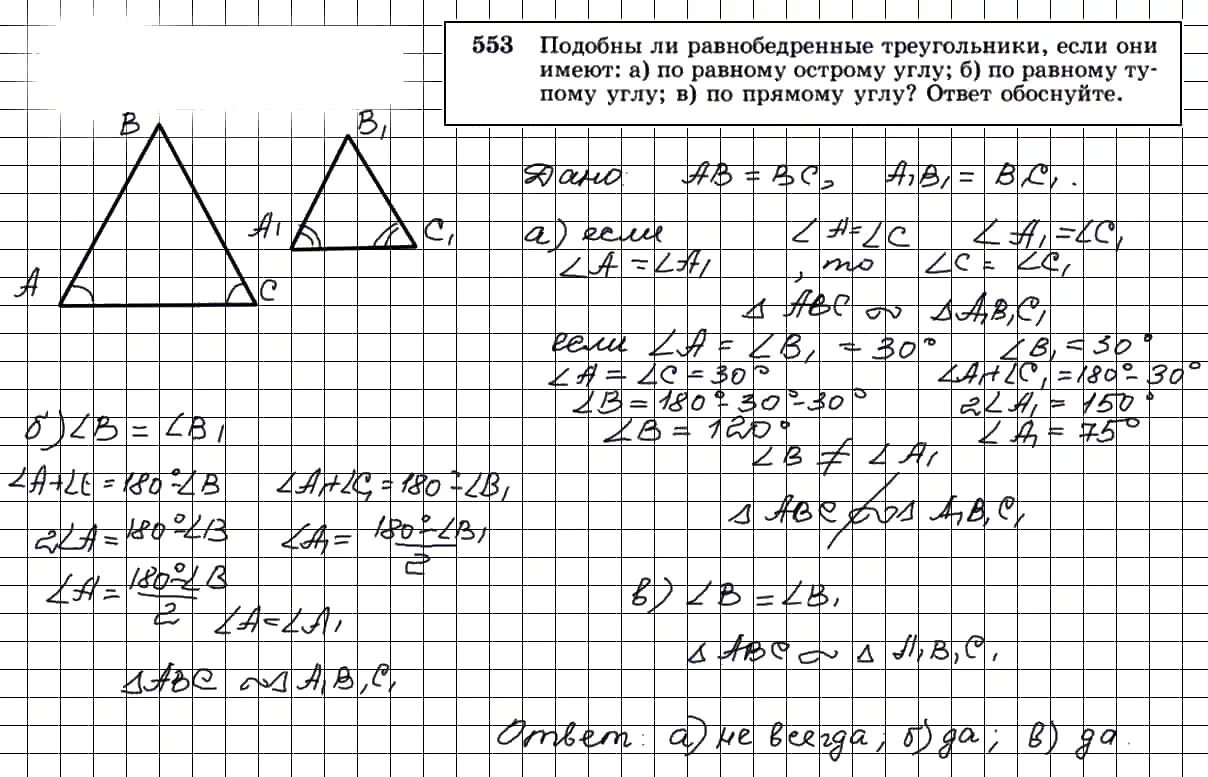 553 Подобны ли равнобедренные треугольники, если они
имеют: а) по равному острому углу; б) по равному ту-
пому углу; в) по прямому углу? Ответ обоснуйте.
B
B₁
A₁
C₁
A
C
Дано: AB = BC, A₁B₁ = B₁C₁.
а) если ∠A = ∠C ∠A₁ = ∠C₁
∠A = ∠A₁, то ∠C = ∠C₁
△ ABC ∾ △ A₁B₁C₁
если ∠A = ∠B₁ = 30° ∠B₁ = 30°
∠A = ∠C = 30° ∠A₁+∠C₁ = 180°-30°
∠B = 180°-30°-30° 2∠A₁ = 150°
∠B = 120° ∠A₁ = 75°
∠B ≠ ∠A₁
△ ABC ∾̸ △ A₁B₁C₁
б) ∠B = ∠B₁
∠A+∠C = 180°-∠B ∠A₁+∠C₁ = 180°-∠B₁
2∠A = 180°-∠B ∠A₁ = (180°-∠B₁)/2
∠A = (180°-∠B)/2 ∠A = ∠A₁
△ABC ∾ △ A₁B₁C₁
в) ∠B = ∠B₁
△ ABC ∾ △ A₁B₁C₁
Ответ: а) не всегда; б) да; в) да.